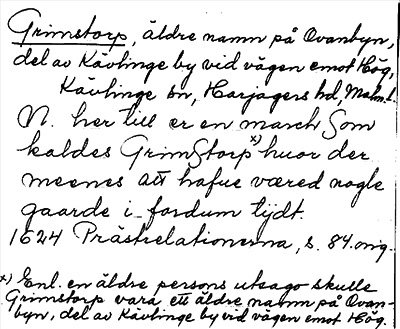 Grimstorp, äldre namn på Ovanbyn,
del av Kävlinge by vid vägen emot Hög,
Kävlinge sn, Harjagers hd, Malm. l.
N. her till er en march Som
kaldes GrimStorp x) huor der
meenes att hafue været nogle
gaarde i fordum tijdt.
1624 Prästrelationerna, s. 84. orig.
x) Enl. en äldre persons utsago skulle
Grimstorp vara ett äldre namn på Ovan-
byn, del av Kävlinge by vid vägen emot Hög.